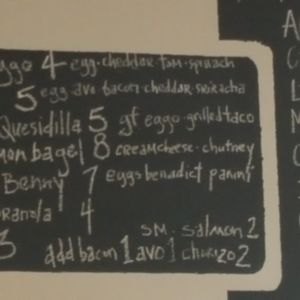 ggo 4 egg·cheddar·tom·spinach
5 egg avo bacon·cheddar·sriracha
Quesidilla 5 gf eggo·grilled taco
mon bagel 8 creamcheese·chutney
Benny 7 eggs benedict panini
ranola 4
3 SM. salmon 2
add bacon 1 avo 1 chorizo 2
A
L